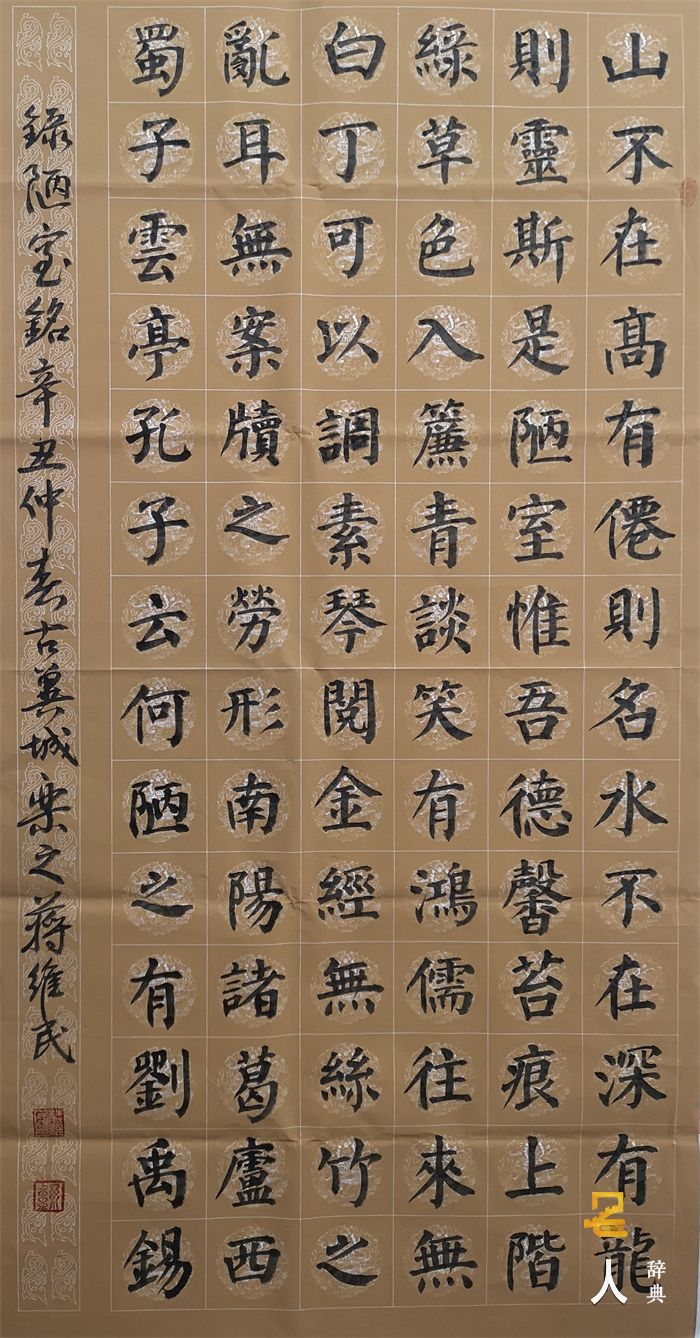 山不在高有僊則名水不在深有龍
則靈斯是陋室惟吾德馨苔痕上階
綠草色入簾青談笑有鴻儒往來無
白丁可以調素琴閱金經無絲竹之
亂耳無案牘之勞形南陽諸葛廬西
蜀子雲亭孔子云何陋之有劉禹錫
錄陋室銘辛丑仲春古翼城樂之蔣維民
名人辞典